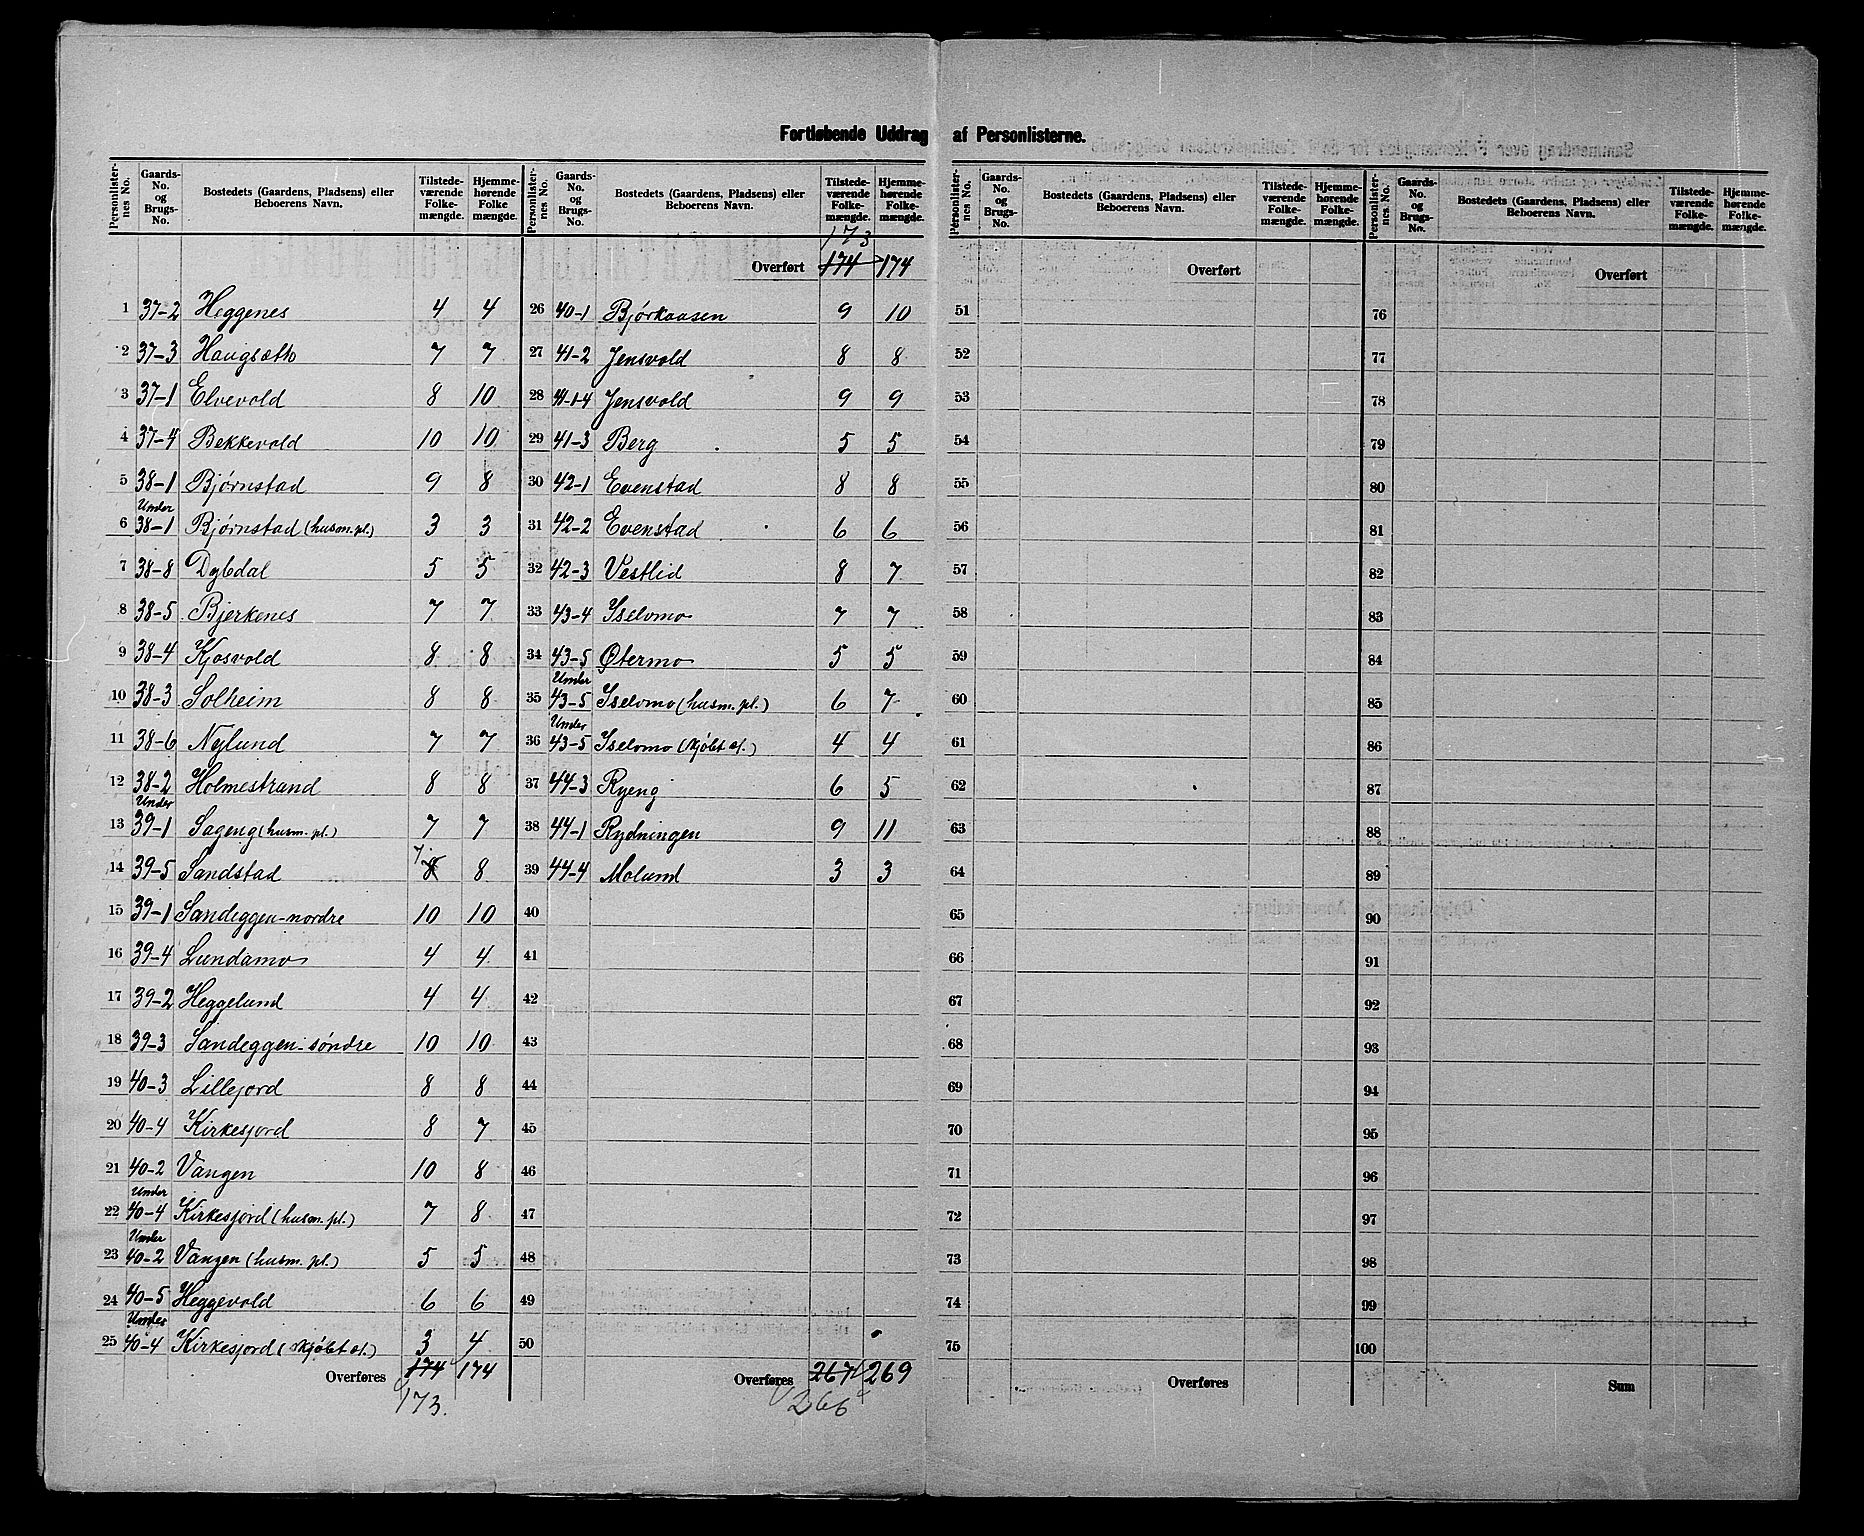 Fortløbende Uddrag af Personlisterne.
Personlisternes No. | Gaards-No. og Brugs-No. | Bostedets (Gaardens, Pladsens) eller Beboerens Navn. | Tilstedeværende Folkemængde. | Hjemmehørende Folkemængde.
1 37-2 Heggenes 4 4
2 37-3 Haugsætto 7 7
3 37-1 Elvevold 8 10
4 37-4 Bekkevold 10 10
5 38-1 Bjørnstad 9 8
6 Under 38-1 Bjørnstad (husm. pl.) 3 3
7 38-8 Dybdal 5 5
8 38-5 Bjerkenes 7 7
9 38-4 Kjosvold 8 8
10 38-3 Solheim 8 8
11 38-6 Nylund 7 7
12 38-2 Holmestrand 8 8
13 Under 39-1 Sageng (husm. pl.) 7 7
14 39-5 Sandstad 7 8 8
15 39-1 Sandeggen-nordre 10 10
16 39-4 Lundamo 4 4
17 39-2 Heggelund 4 4
18 39-3 Sandeggen-søndre 10 10
19 40-3 Lillejord 8 8
20 40-4 Kirkesjord 8 7
21 40-2 Vangen 10 8
22 Under 40-4 Kirkesjord (husm. pl.) 7 8
23 Under 40-2 Vangen (husm. pl.) 5 5
24 40-5 Heggevold 6 6
25 Under 40-4 Kirkesjord (kjøbt st.) 3 4
Overføres 174 174
173.
Personlisternes No. | Gaards-No. og Brugs-No. | Bostedets (Gaardens, Pladsens) eller Beboerens Navn. | Tilstedeværende Folkemængde. | Hjemmehørende Folkemængde.
173
Overført 174 174
26 40-1 Bjørkaasen 9 10
27 41-2 Jensvold 8 8
28 41-1-4 Jensvold 9 9
29 41-3 Berg 5 5
30 42-1 Evenstad 8 8
31 42-2 Evenstad 6 6
32 42-3 Vestlid 8 7
33 43-4 Iselvmo 7 7
34 43-5 Øtermo 5 5
35 Under 43-5 Iselvmo (husm. pl.) 6 7
36 Under 43-5 Iselvmo (kjøbt st.) 4 4
37 44-3 Ryeng 6 5
38 44-1 Rydningen 9 11
39 44-4 Molund 3 3
40
41
42
43
44
45
46
47
48
49
50
Overføres 267 269
266
Personlisternes No. | Gaards-No. og Brugs-No. | Bostedets (Gaardens, Pladsens) eller Beboerens Navn. | Tilstedeværende Folkemængde. | Hjemmehørende Folkemængde.
Overført
51
52
53
54
55
56
57
58
59
60
61
62
63
64
65
66
67
68
69
70
71
72
73
74
75
Overføres
Personlisternes No. | Gaards-No. og Brugs-No. | Bostedets (Gaardens, Pladsens) eller Beboerens Navn. | Tilstedeværende Folkemængde. | Hjemmehørende Folkemængde.
Overført
76
77
78
79
80
81
82
83
84
85
86
87
88
89
90
91
92
93
94
95
96
97
98
99
100
Sum